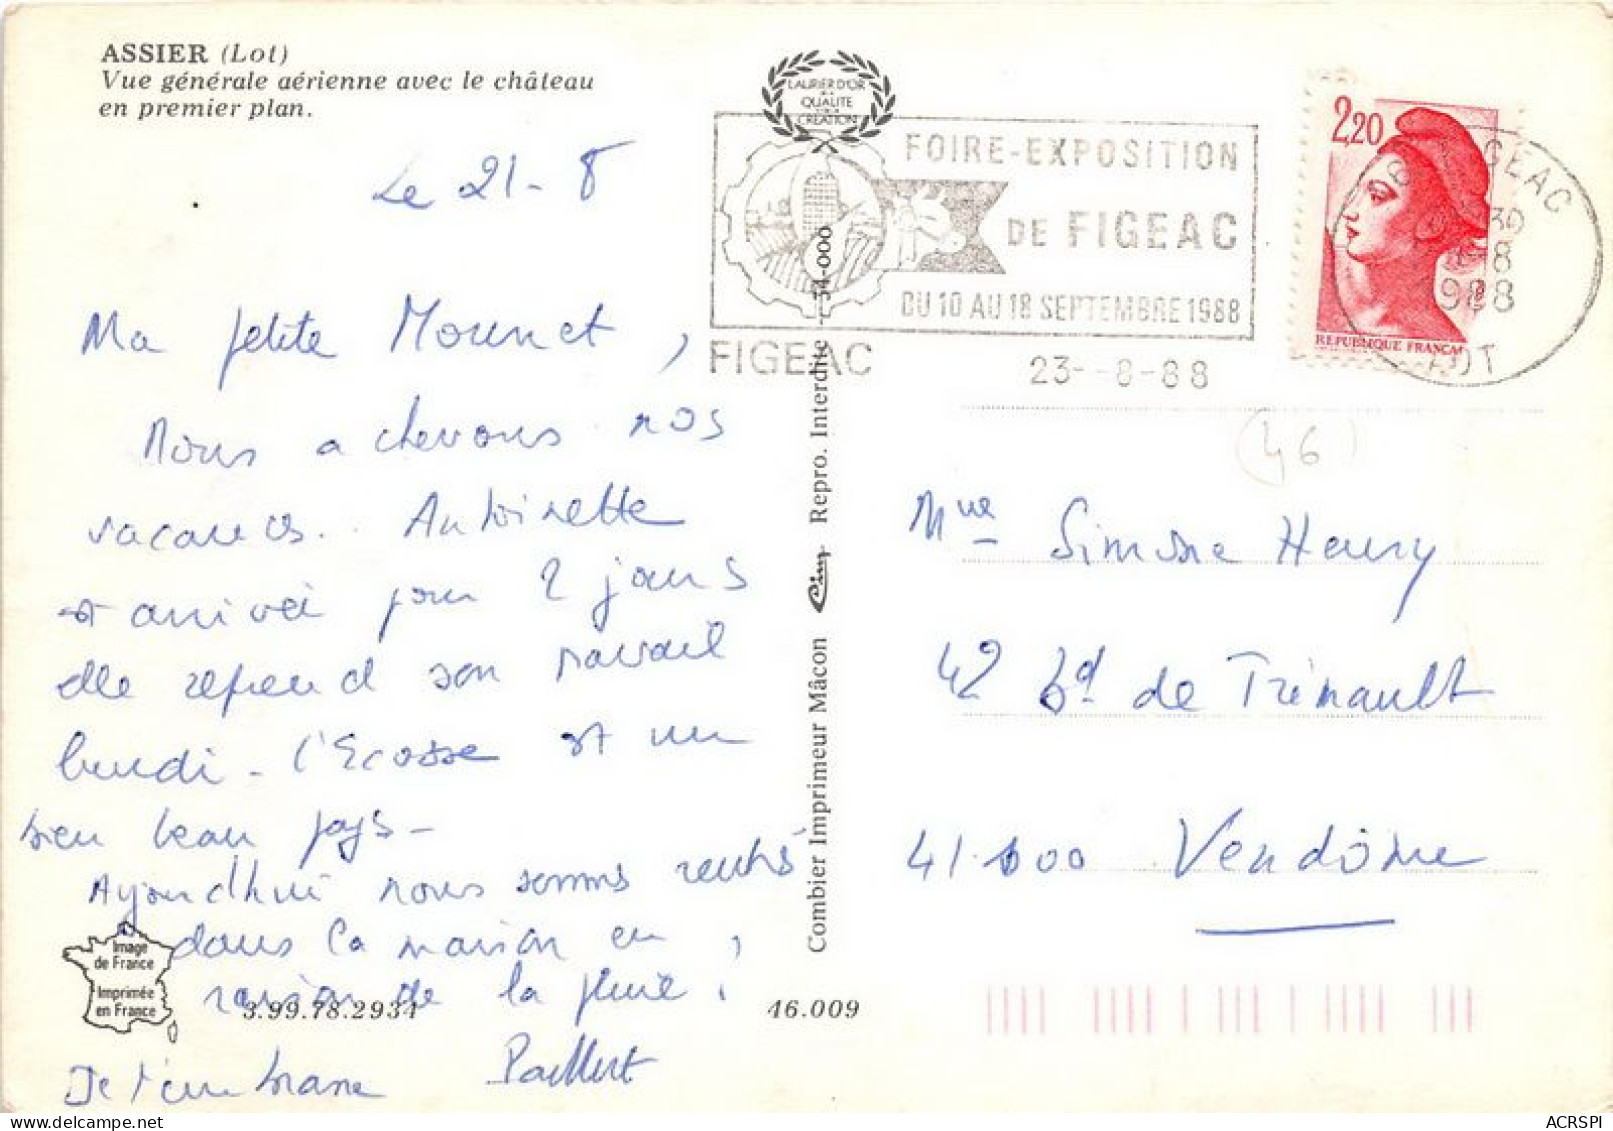 ASSIER (Lot)
Vue générale aérienne avec le château
en premier plan.
Le 21-8
Ma petite Mounet,
Nous achevons nos
vacances. Antoinette
est arrivée pour 2 jours
elle reprend son travail
lundi - l'Ecosse est un
bien beau pays -
Aujourd'hui nous sommes rentrés
dans la maison en
raison de la pluie.
Je t'embrasse
Image
de France
Imprimée
en France
3.99.78.2934
46.009
Combier Imprimeur Mâcon Cim Repro. Interdite 54-000
LAURIER D'OR
DE LA
QUALITE
CREATION
FOIRE-EXPOSITION
DE FIGEAC
DU 10 AU 18 SEPTEMBRE 1988
FIGEAC
23--8-88
2,20
REPUBLIQUE FRANCAI
FIGEAC
30
-8
1988
LOT
(46)
Mme Simone Henry
42 bd de Trémault
41.100 Vendôme
ACRSPI